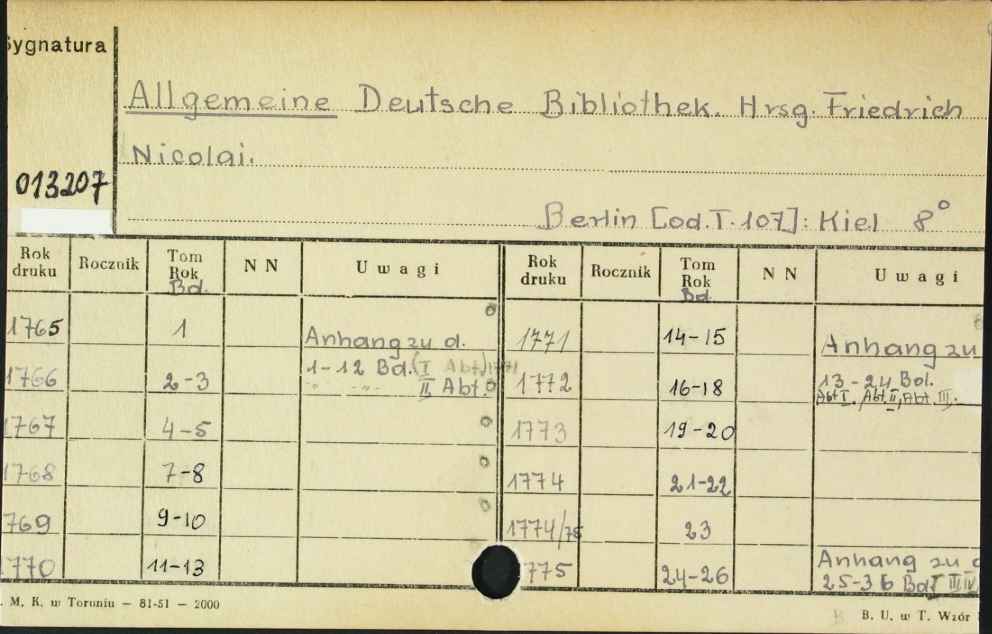 Sygnatura
Allgemeine Deutsche Bibliothek. Hrsg. Friedrich
Nicolai.
013207
Berlin [od.T.107]: Kiel 8°
Rok druku Rocznik Tom Rok Bd. N N Uwagi Rok druku Rocznik Tom Rok Bd. N N Uwagi
1765 1 Anhang zu d. 1771 14-15 Anhang zu
1-12 Bd. (I Abt.) 1771 13-24 Bd.
1766 2-3 " " II Abt. 1772 16-18 Abt I., Abt. II, Abt. III.
1767 4-5 1773 19-20
1768 7-8 1774 21-22
769 9-10 1774/75 23
770 11-13 775 24-26 Anhang zu d
25-36 Bd. I II III IV
. M. K. w Toruniu – 81-51 – 2000
B. U. w T. Wzór